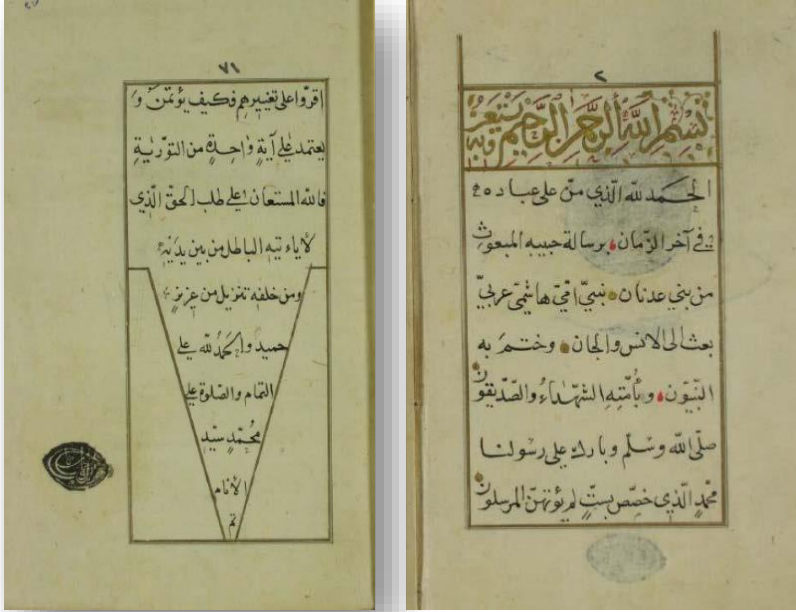 ٢
بسم الله الرحمن الرحيم وبه نستعين
الحمد لله الّذي منّ على عباده
في آخر الزّمان برسالة حبيبه المبعوث
من بني عدنان نبيّ امّيّ هاشميّ عربيّ
بعث الى الانس والجان وختم به
النبيّون وبأمّته الشهداءُ والصّدّيقون
صلّى الله وسلّم وبارك على رسولنا
محمّدٍ الّذي خصّص بستٍّ لم يؤتهنّ المرسلون
٧١
اقرّوا على تغييرهم فكيف يؤتمن و
يعتمد على آيةٍ واحدةٍ من التوّريةِ
فالله المستعان على طلب الحقّ الّذي
لا ياءتيه الباطل من بين يديه
ومن خلفه تنزيل من عزيزٍ
حميد والحمدُ للّه على
التمام والصّلوة على
محمّدٍ سيّدِ
الأنام
تم